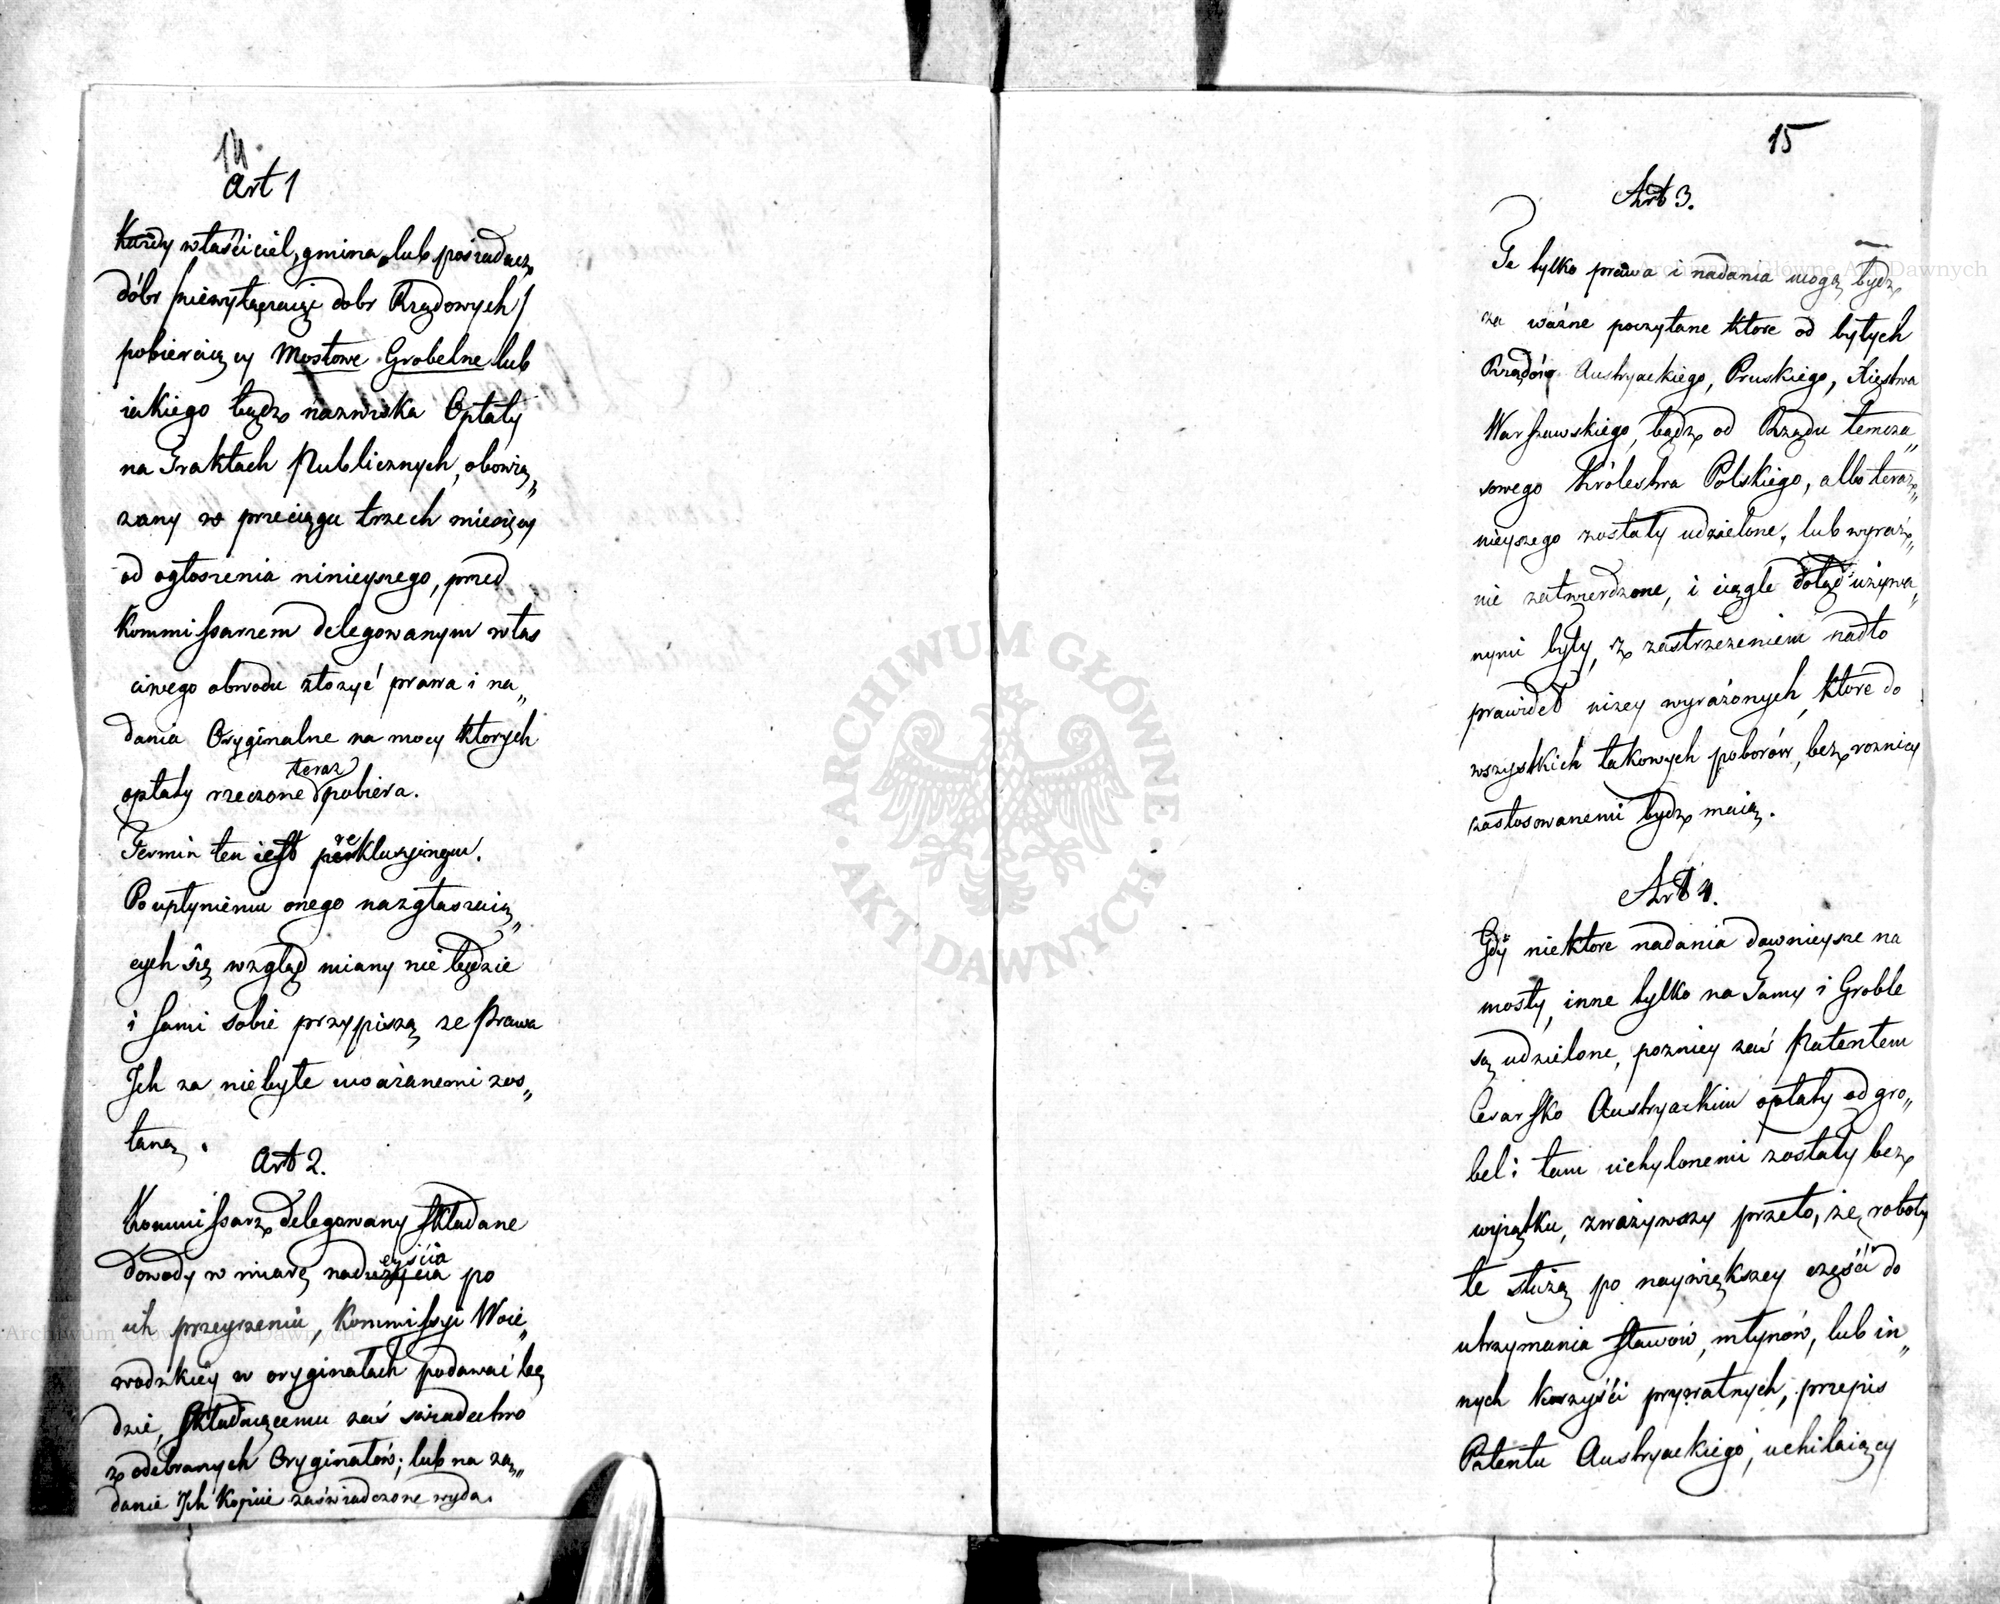 14.
Art 1
Każdy właściciel, gmina lub posiadacz
dóbr /niewyłączaiąc dobr Rządowych/
pobieraiący Mostowe Grobelne lub
iakiego bądź nazwiska Opłaty
na Traktach Publicznych, obowią„
zany w przeciągu trzech miesięcy
od ogłoszenia ninieyszego, przed
Kommissarzem delegowanym właś
ciwego obwodu złożyć prawa i na„
dania Oryginalne na mocy których
teraz
opłaty rzeczone pobiera.
Termin ten iest prekluzyinym.
Po upłynieniu onego nazgłaszaią„
cych się wzgląd miany nie będzie
i sami sobie przypiszą ze Prawa
Ich za niebyłe uważanemi zos„
taną.
Art 2.
Kommissarz delegowany składane
eyścia
dowody w miarę nadużycia po
ich przeyrzeniu, Kommissyi Woie„
wodzkiey w oryginałach podawać bę
dzie, składaiącemu zaś świadectwo
z odebranych Oryginałów; lub na żą„
danie Ich Kopiie zaświadczone wyda.
15
Art 3.
Te tylko prawa i nadania mogą bydź
za ważne poczytane które od byłych
Rządów Austryackiego, Pruskiego, Xięstwa
Warszawskiego, bądź od Rządu temcza„
sowego Królestwa Polskiego, albo teraź„
nieyszego zostały udzielone, lub wyraź„
nie zatwierdzone, i ciągle dotąd używa„
nymi były, z zastrzeżeniem nadto
prawideł niżey wyrażonych, które do
wszystkich takowych poborów, bez roznicy
zastosowanemi bydź maią.
Art 4.
Gdy niektore nadania dawnieysze na
mosty, inne tylko na Tamy i Groble
są udzielone, pozniey zaś Patentem
Cesarsko Austryackim opłaty od gro„
bel i tam uchylonemi zostały bez
wyiątku, zważywszy przeto, że roboty
te służą po naywiększey części do
utrzymania stawów, młynów, lub in„
nych korzyści prywatnych, przepis
Patentu Austryackiego, uchilaiący
ARCHIWUM GŁÓWNE
AKT DAWNYCH
Archiwum Główne Akt Dawnych
Archiwum Główne Akt Dawnych